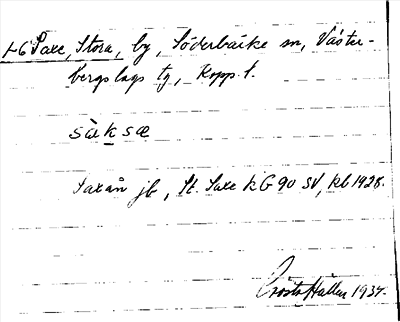 +G Saxe, Stora, by, Söderbärke sn, Väster-
bergslags tg, Kopp. l.
säksæ
Saxån jb, St. Saxe kG 90 SV, kb 1928.
Gösta Hallen 1937.